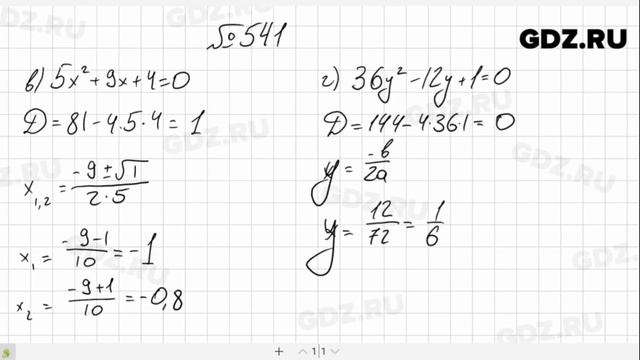 № 541
GDZ.RU
в) 5x² + 9x + 4 = 0
D = 81 - 4·5·4 = 1
x₁,₂ = (-9 ± √1) / (2·5)
x₁ = (-9-1) / 10 = -1
x₂ = (-9+1) / 10 = -0,8
г) 36y² - 12y + 1 = 0
D = 144 - 4·36·1 = 0
y = -в / 2a
y = 12 / 72 = 1 / 6
GDZ.RU
GDZ.RU
GDZ.RU
GDZ.RU
GDZ.RU
GDZ.RU
+ 1|1